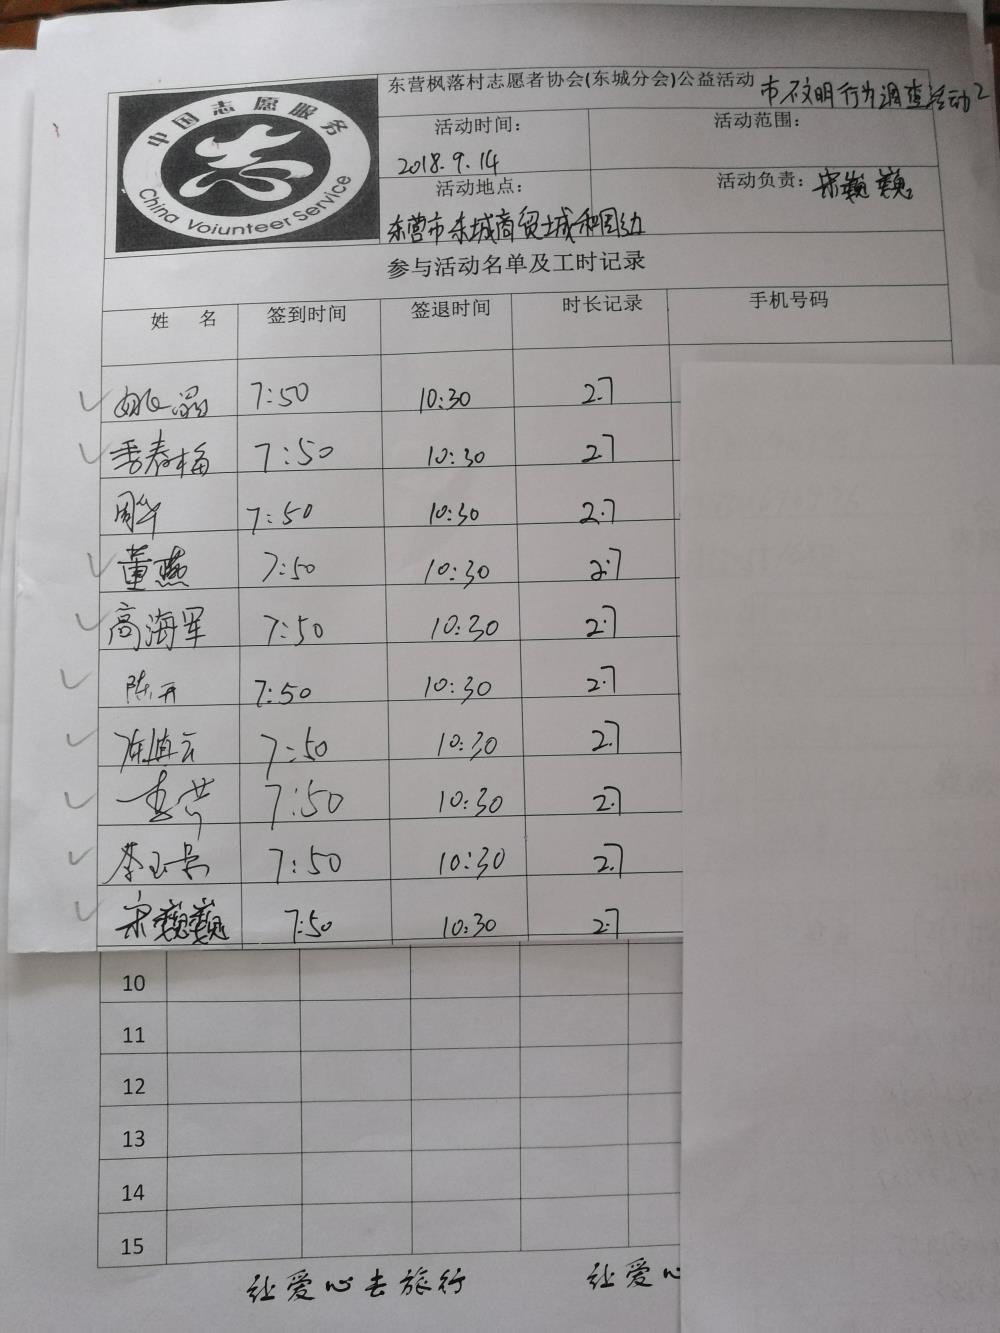 东营枫落村志愿者协会(东城分会)公益活动 市不文明行为调查活动2
中国志愿服务
China Voiunteer Service
活动时间： 活动范围：
2018.9.14
活动地点： 活动负责：宋巍巍
东营市东城商贸城和周边
参与活动名单及工时记录
姓 名 签到时间 签退时间 时长记录 手机号码
7:50 10:30 2.7
季春梅 7:50 10:30 2.7
周华 7:50 10:30 2.7
董燕 7:50 10:30 2.7
高海军 7:50 10:30 2.7
陈开 7:50 10:30 2.7
7:50 10:30 2.7
7:50 10:30 2.7
7:50 10:30 2.7
宋巍巍 7:50 10:30 2.7
10
11
12
13
14
15
让爱心去旅行 让爱心